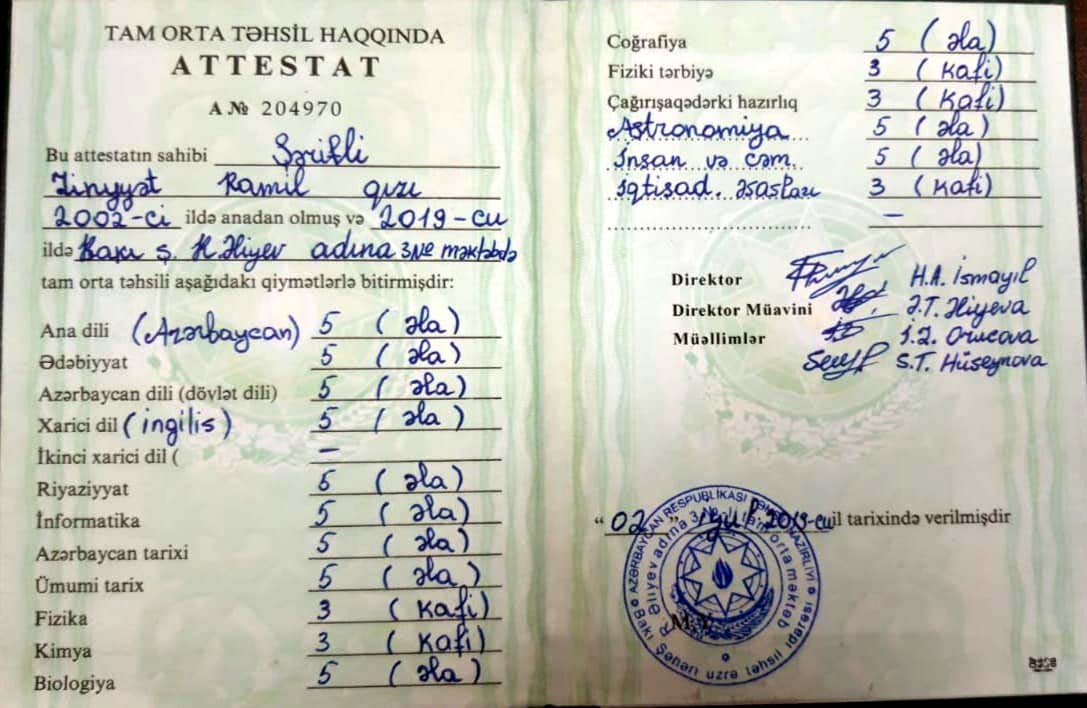 TAM ORTA TƏHSİL HAQQINDA
ATTESTAT
A № 204970
Bu attestatın sahibi Şərifli
Zinyyət Ramil qızı
2002-ci ildə anadan olmuş və 2019-cu
ildə Bakı ş. H.Əliyev adına 3№ məktəbdə
tam orta təhsili aşağıdakı qiymətlərlə bitirmişdir:
Ana dili (Azərbaycan) 5 (əla)
Ədəbiyyat 5 (əla)
Azərbaycan dili (dövlət dili) 5 (əla)
Xarici dil (ingilis) 5 (əla)
İkinci xarici dil ( –
Riyaziyyat 5 (əla)
İnformatika 5 (əla)
Azərbaycan tarixi 5 (əla)
Ümumi tarix 5 (əla)
Fizika 3 (kafi)
Kimya 3 (kafi)
Biologiya 5 (əla)
Coğrafiya 5 (əla)
Fiziki tərbiyə 3 (kafi)
Çağırışaqədərki hazırlıq 3 (kafi)
Astronomiya 5 (əla)
İnsan və cəm. 5 (əla)
İqtisad. əsasları 3 (kafi)
–
Direktor H.A. İsmayıl
Direktor Müavini Ə.T. Əliyeva
Müəllimlər Orucova
S.T. Hüseynova
"02" iyul 2019-cu il tarixində verilmişdir
AZƏRBAYCAN RESPUBLİKASI TƏHSİL NAZİRLİYİ
Bakı Şəhəri üzrə təhsil idarəsi
Əliyev adına 3 №-li tam orta məktəb
M.Y.